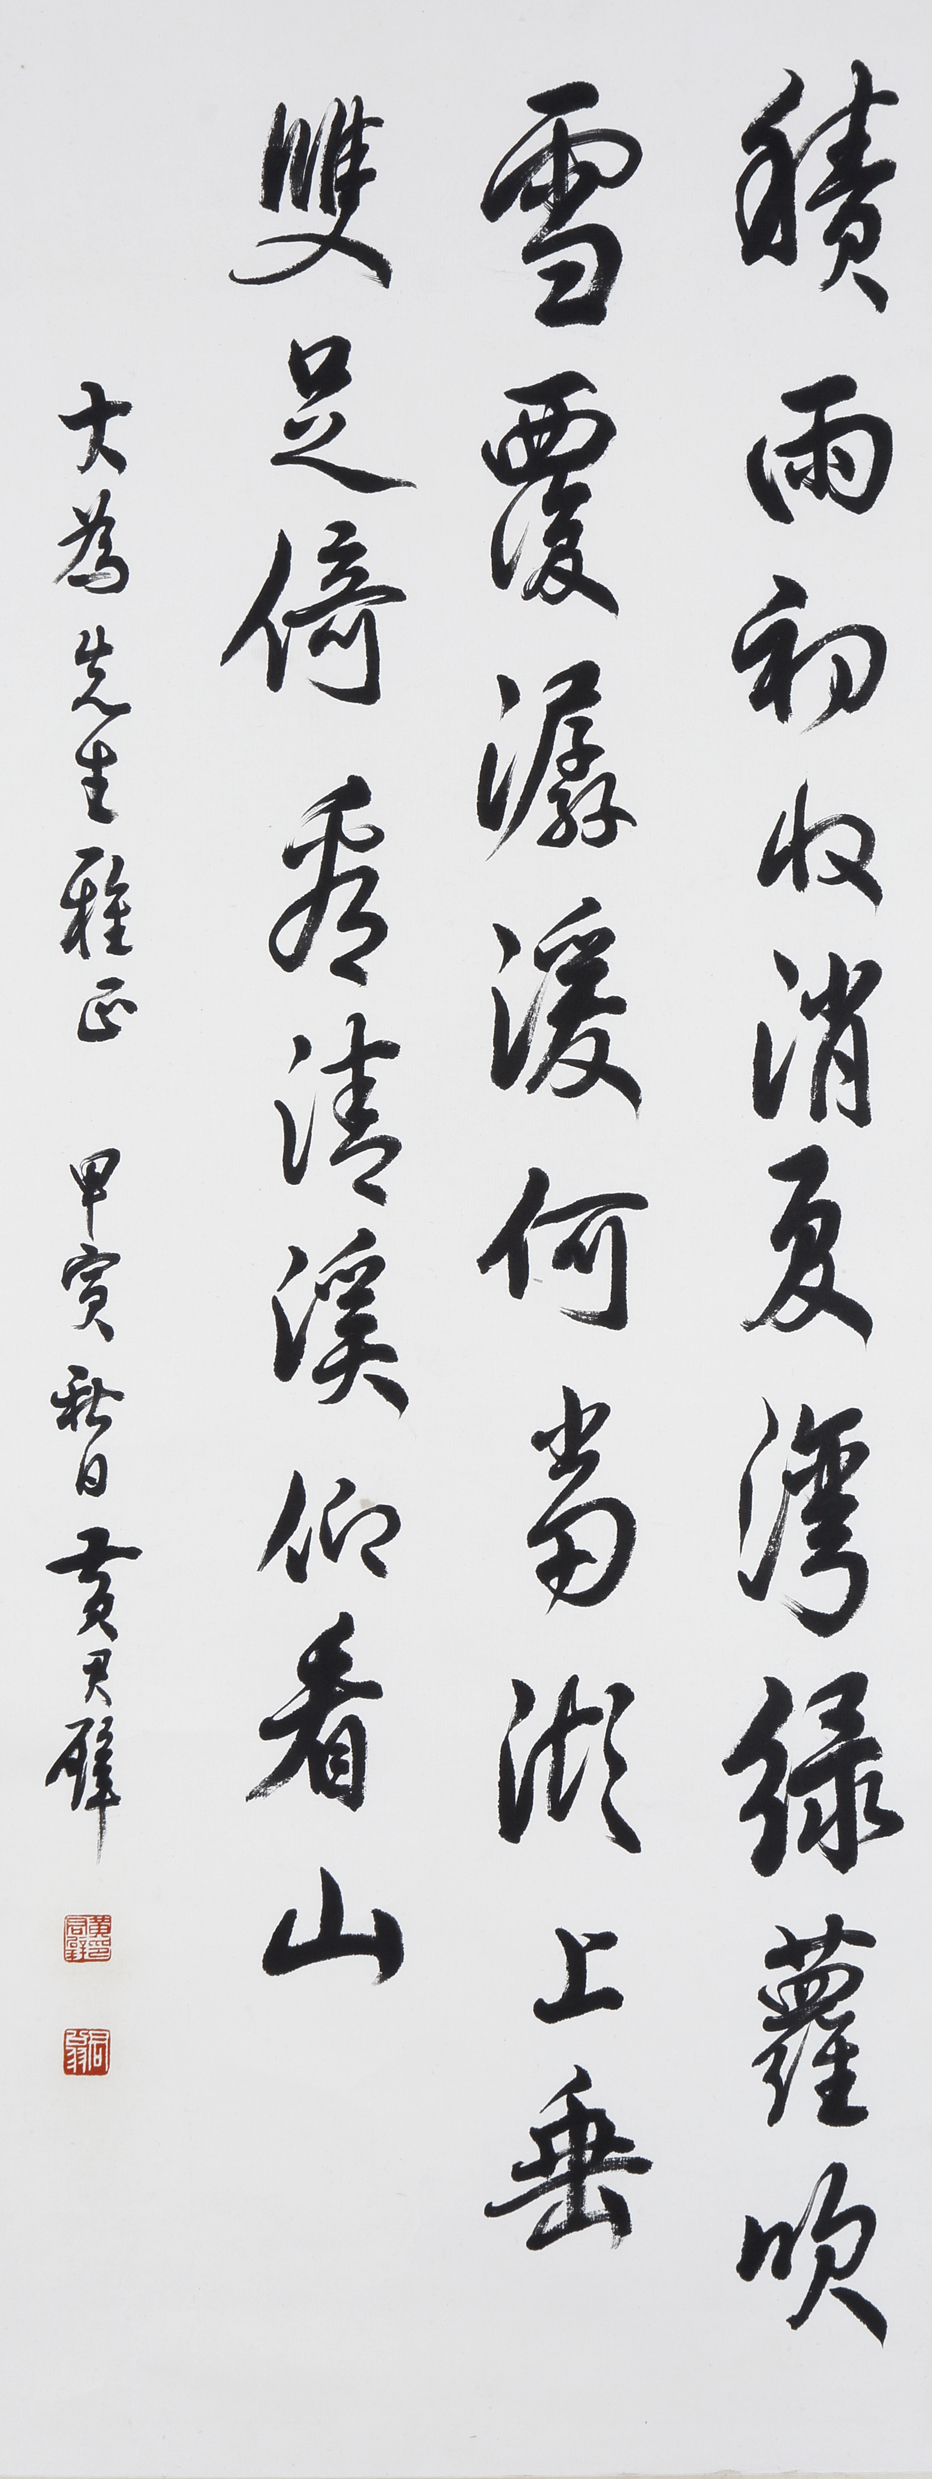 積雨初收消夏灣綠蘿吹
雪覆潺湲何當湖上垂
雙足倚看清溪仰看山
大為先生雅正 甲寅秋日 黃君璧
黃君璧印
君翁